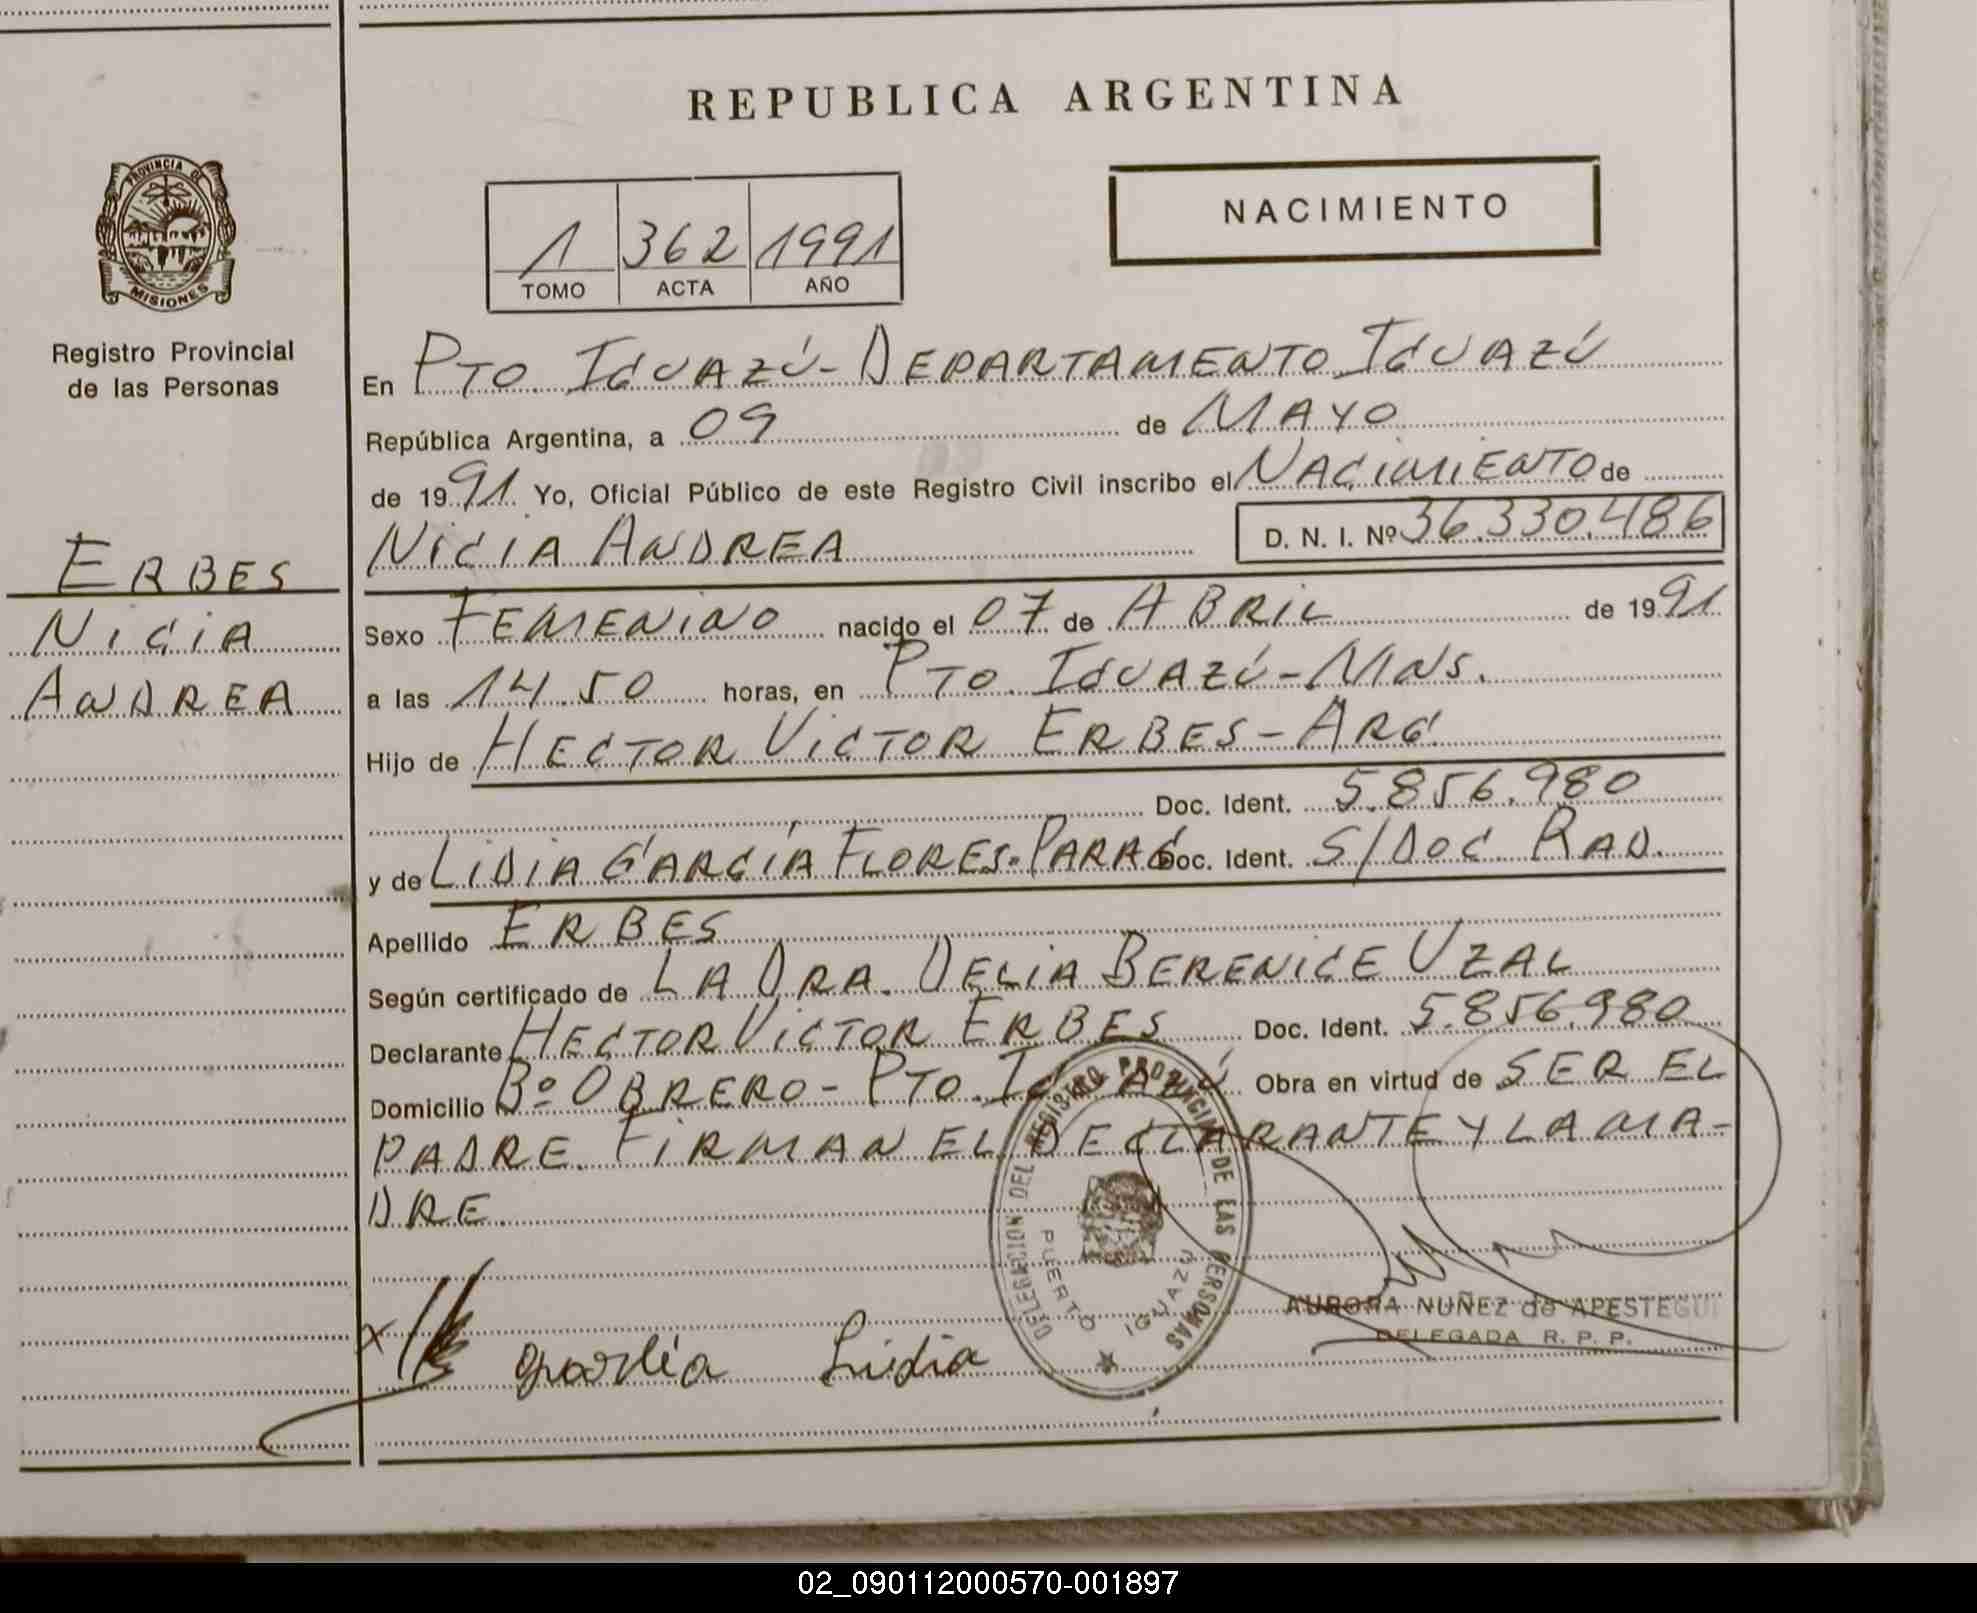 REPUBLICA ARGENTINA
PROVINCIA DE
MISIONES
Registro Provincial
de las Personas
ERBES
NICIA
ANDREA
1 362 1991
TOMO ACTA AÑO
NACIMIENTO
En PTO. IGUAZÚ - DEPARTAMENTO IGUAZÚ
República Argentina, a 09 de MAYO
de 1991. Yo, Oficial Público de este Registro Civil inscribo el NACIMIENTO de
NICIA ANDREA D. N. I. Nº 36.330.486
Sexo FEMENINO nacido el 07 de ABRIL de 1991
a las 14.50 horas, en PTO. IGUAZÚ - MNS.
Hijo de HECTOR VICTOR ERBES - ARG.
Doc. Ident. 5.856.980
y de LIDIA GARCÍA FLORES - PARAG Doc. Ident. S/DOC RAD.
Apellido ERBES
Según certificado de LA DRA. DELIA BERENICE UZAL
Declarante HECTOR VICTOR ERBES Doc. Ident. 5.856.980
Domicilio Bº OBRERO - PTO. IGUAZÚ Obra en virtud de SER EL
PADRE. FIRMAN EL DECLARANTE Y LA MA-
DRE.
DELEGACION DEL REGISTRO PROVINCIAL DE LAS PERSONAS
PUERTO IGUAZU
AURORA NUÑEZ de APESTEGUI
DELEGADA R. P. P.
x
Lidia
02_090112000570-001897